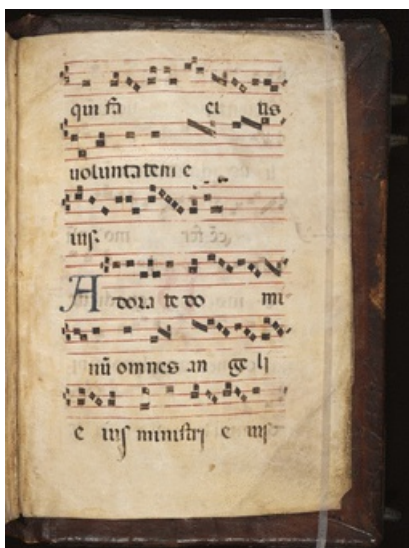 qui fa ci tis
uoluntatem e
ius.
Adora te do mi
nū omnes an ge li
e ius ministri e ius